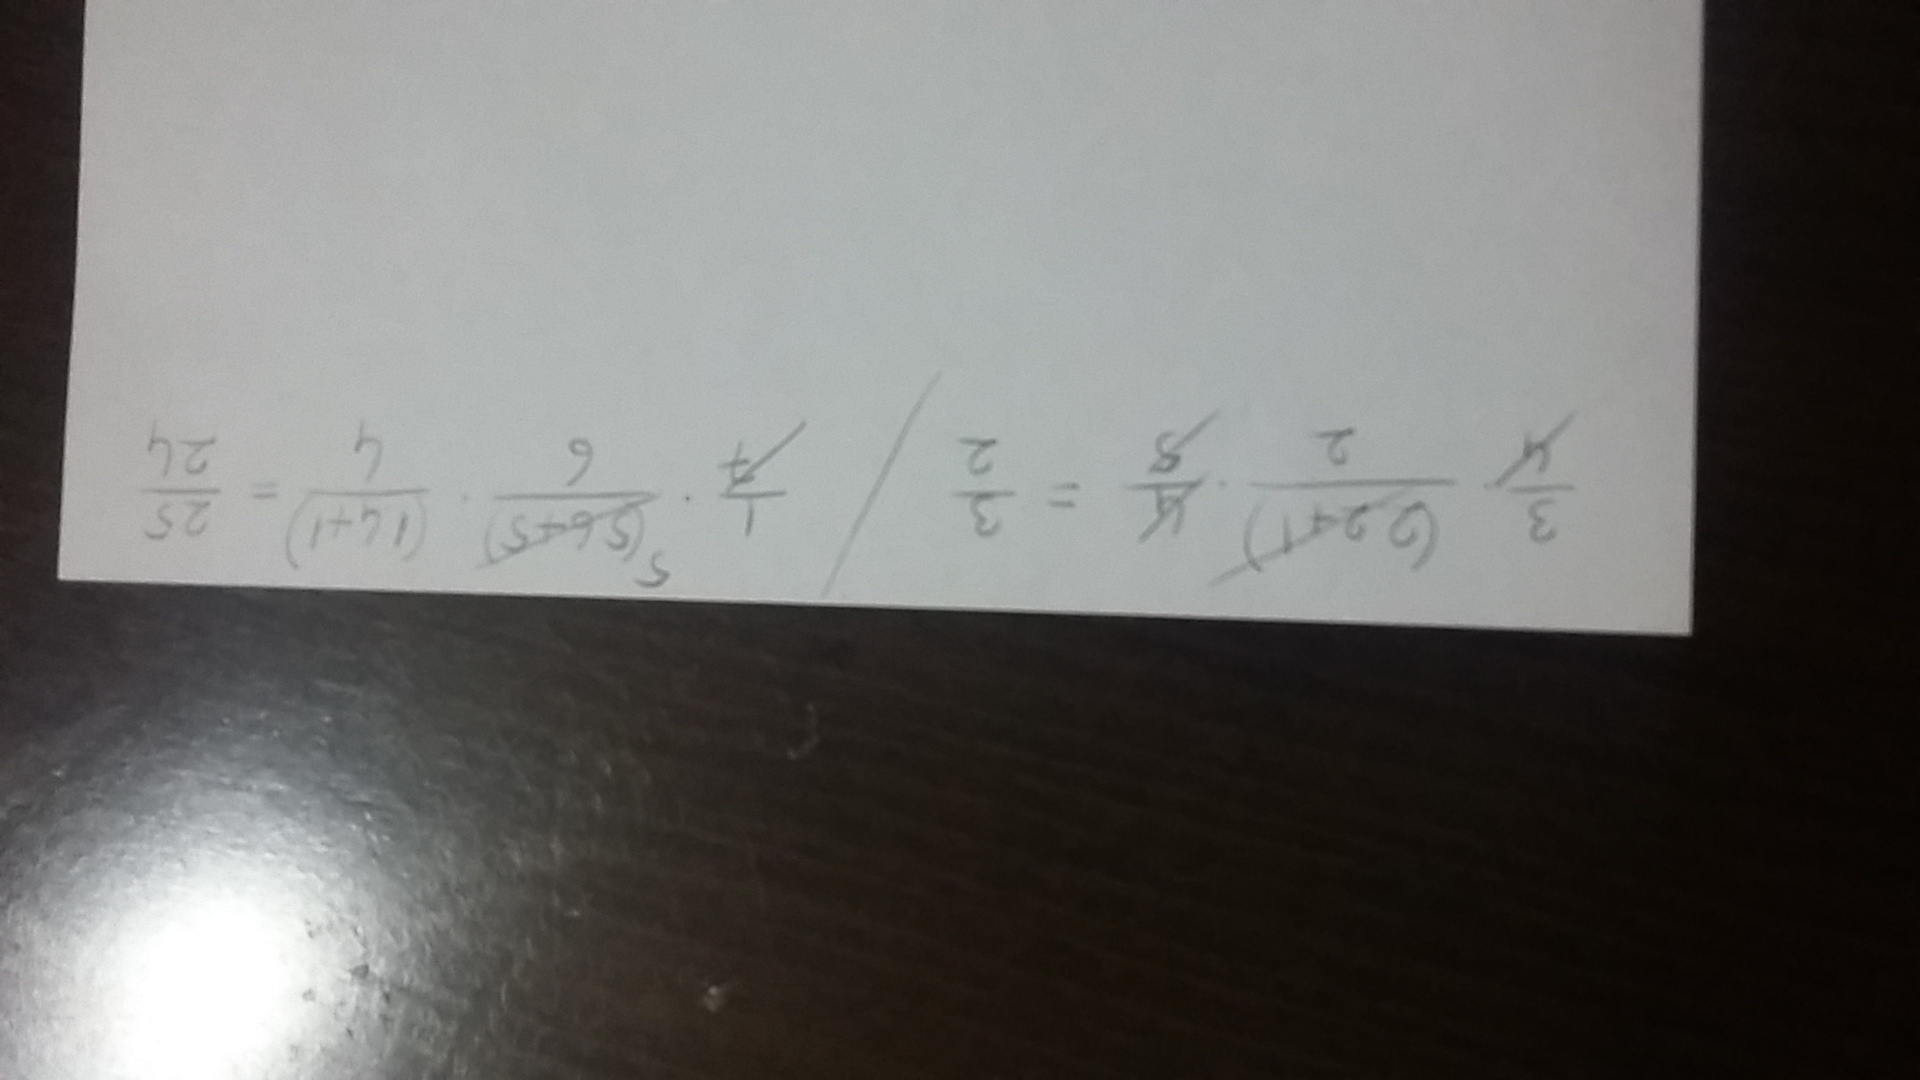 3/4 · (2 2+1)/2 · 4/5 = 3/2 / 1/7 · 5 (5 6+5)/6 · (1 4+1)/4 = 25/24